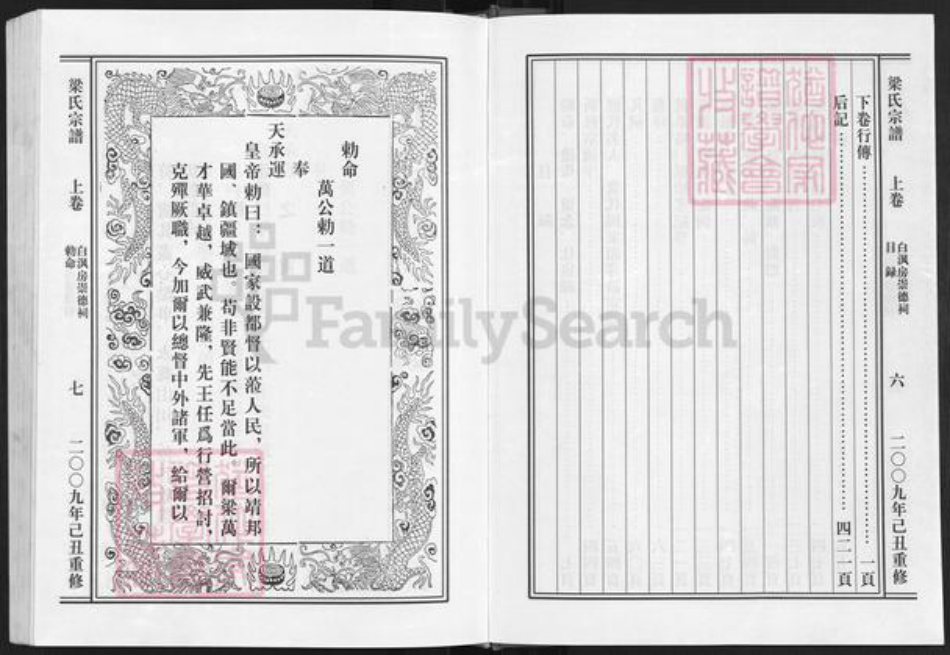 梁氏宗譜
上卷
白渢房崇德祠
目錄
六
二〇〇九年己丑重修
下卷行傳……一頁
后記……四二一頁
譜學會
收藏
梁氏宗譜
上卷
白渢房崇德祠
勅命
七
二〇〇九年己丑重修
勅命
萬公勅一道
奉
天承運
皇帝勅曰：國家設都督以蒞人民，所以靖邦
國、鎮疆域也　苟非賢能不足當此　爾梁萬
才華卓越，威武兼隆，先王任爲行營招討，
克殫厥職，今加爾以總督中外諸軍，給爾以
FamilySearch